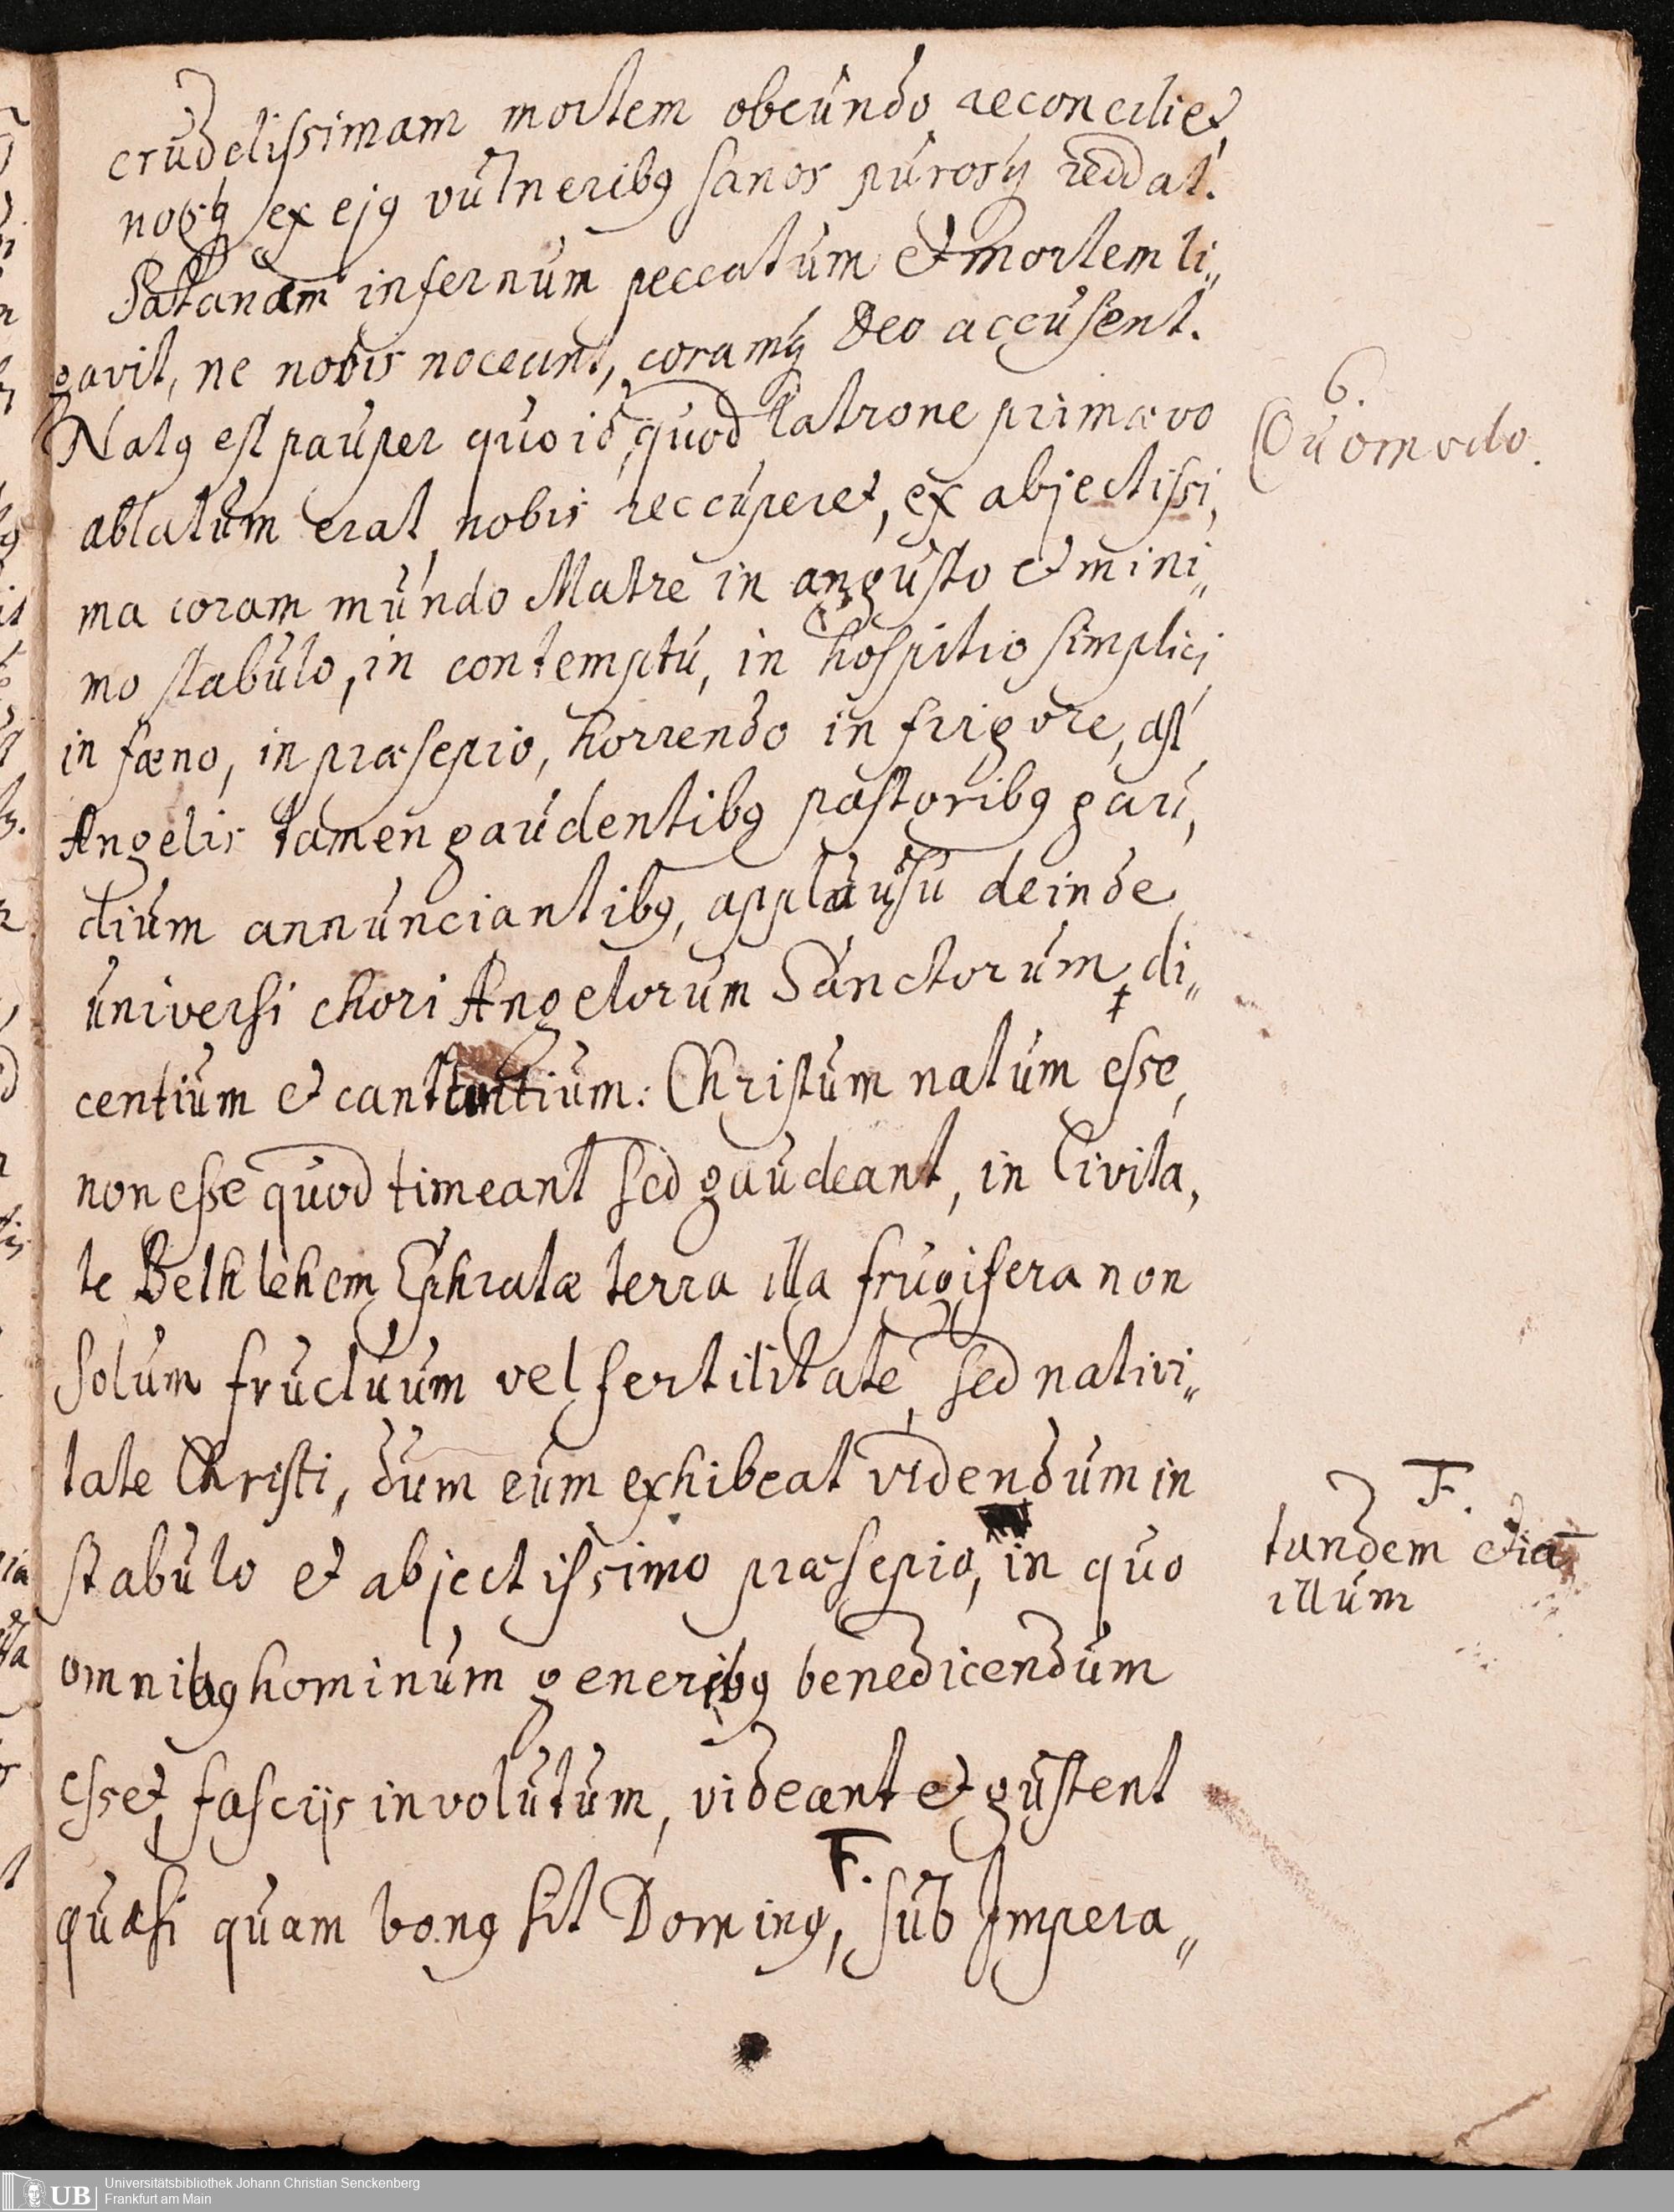 crudelissimam mortem obeundo reconciliet
nosq; ex ej9 vulnerib9 sanos purosq; reddat.
Satanam infernum peccatum et mortem li„
gavit, ne nobis noceant, coramq; Deo accusent.
Nat9 est pauper quo id, quod latrone primævo
ablatum erat nobis reccuperet, ex abjectissi,
ma coram mundo Matre in angusto et mini„
mo stabulo, in contemptu, in hospitio simplici
in fæno, in præsepio, horrendo in frigore, ast
Angelis tamen gaudentib9 pastorib9 gau,
dium annunciantib9, applausu deinde
universi chori Angelorum Sanctorum di„
centium et cantantium: Christum natum esse,
non esse quod timeant sed gaudeant, in Civita,
te Bethlehem Ephratæ terra illa frugifera non
solum fructuum vel fertilitate, sed nativi„
tate Christi, dum eum exhibeat videndum in
stabulo et abjectissimo præsepio, in quo
omnib9 hominum generib9 benedicendum
esset, fasciis involutum, videant et gustent
quasi quam bon9 sit Domin9, F. sub Impera„
6.
Quomodo.
F.
tandem etiā
illum
Universitätsbibliothek Johann Christian Senckenberg
Frankfurt am Main
UB